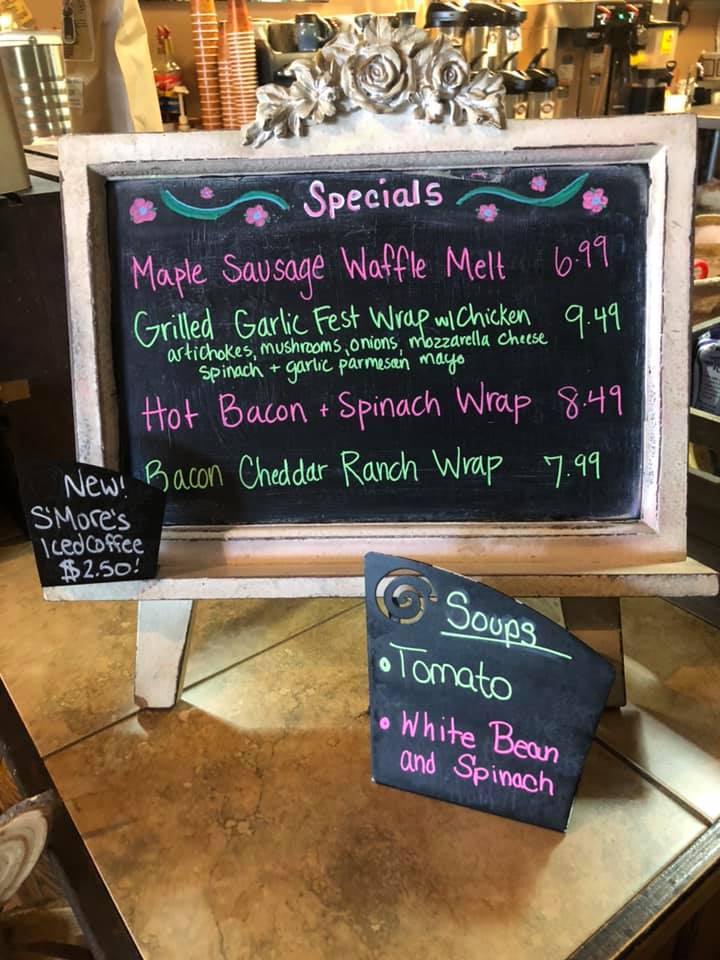 Specials
Maple Sausage Waffle Melt 6.99
Grilled Garlic Fest Wrap w/Chicken 9.49
artichokes, mushrooms, onions, mozzarella cheese
spinach + garlic parmesan mayo
Hot Bacon + Spinach Wrap 8.49
Bacon Cheddar Ranch Wrap 7.99
New!
S'More's
Iced Coffee
$2.50!
Soups
• Tomato
• White Bean
and Spinach